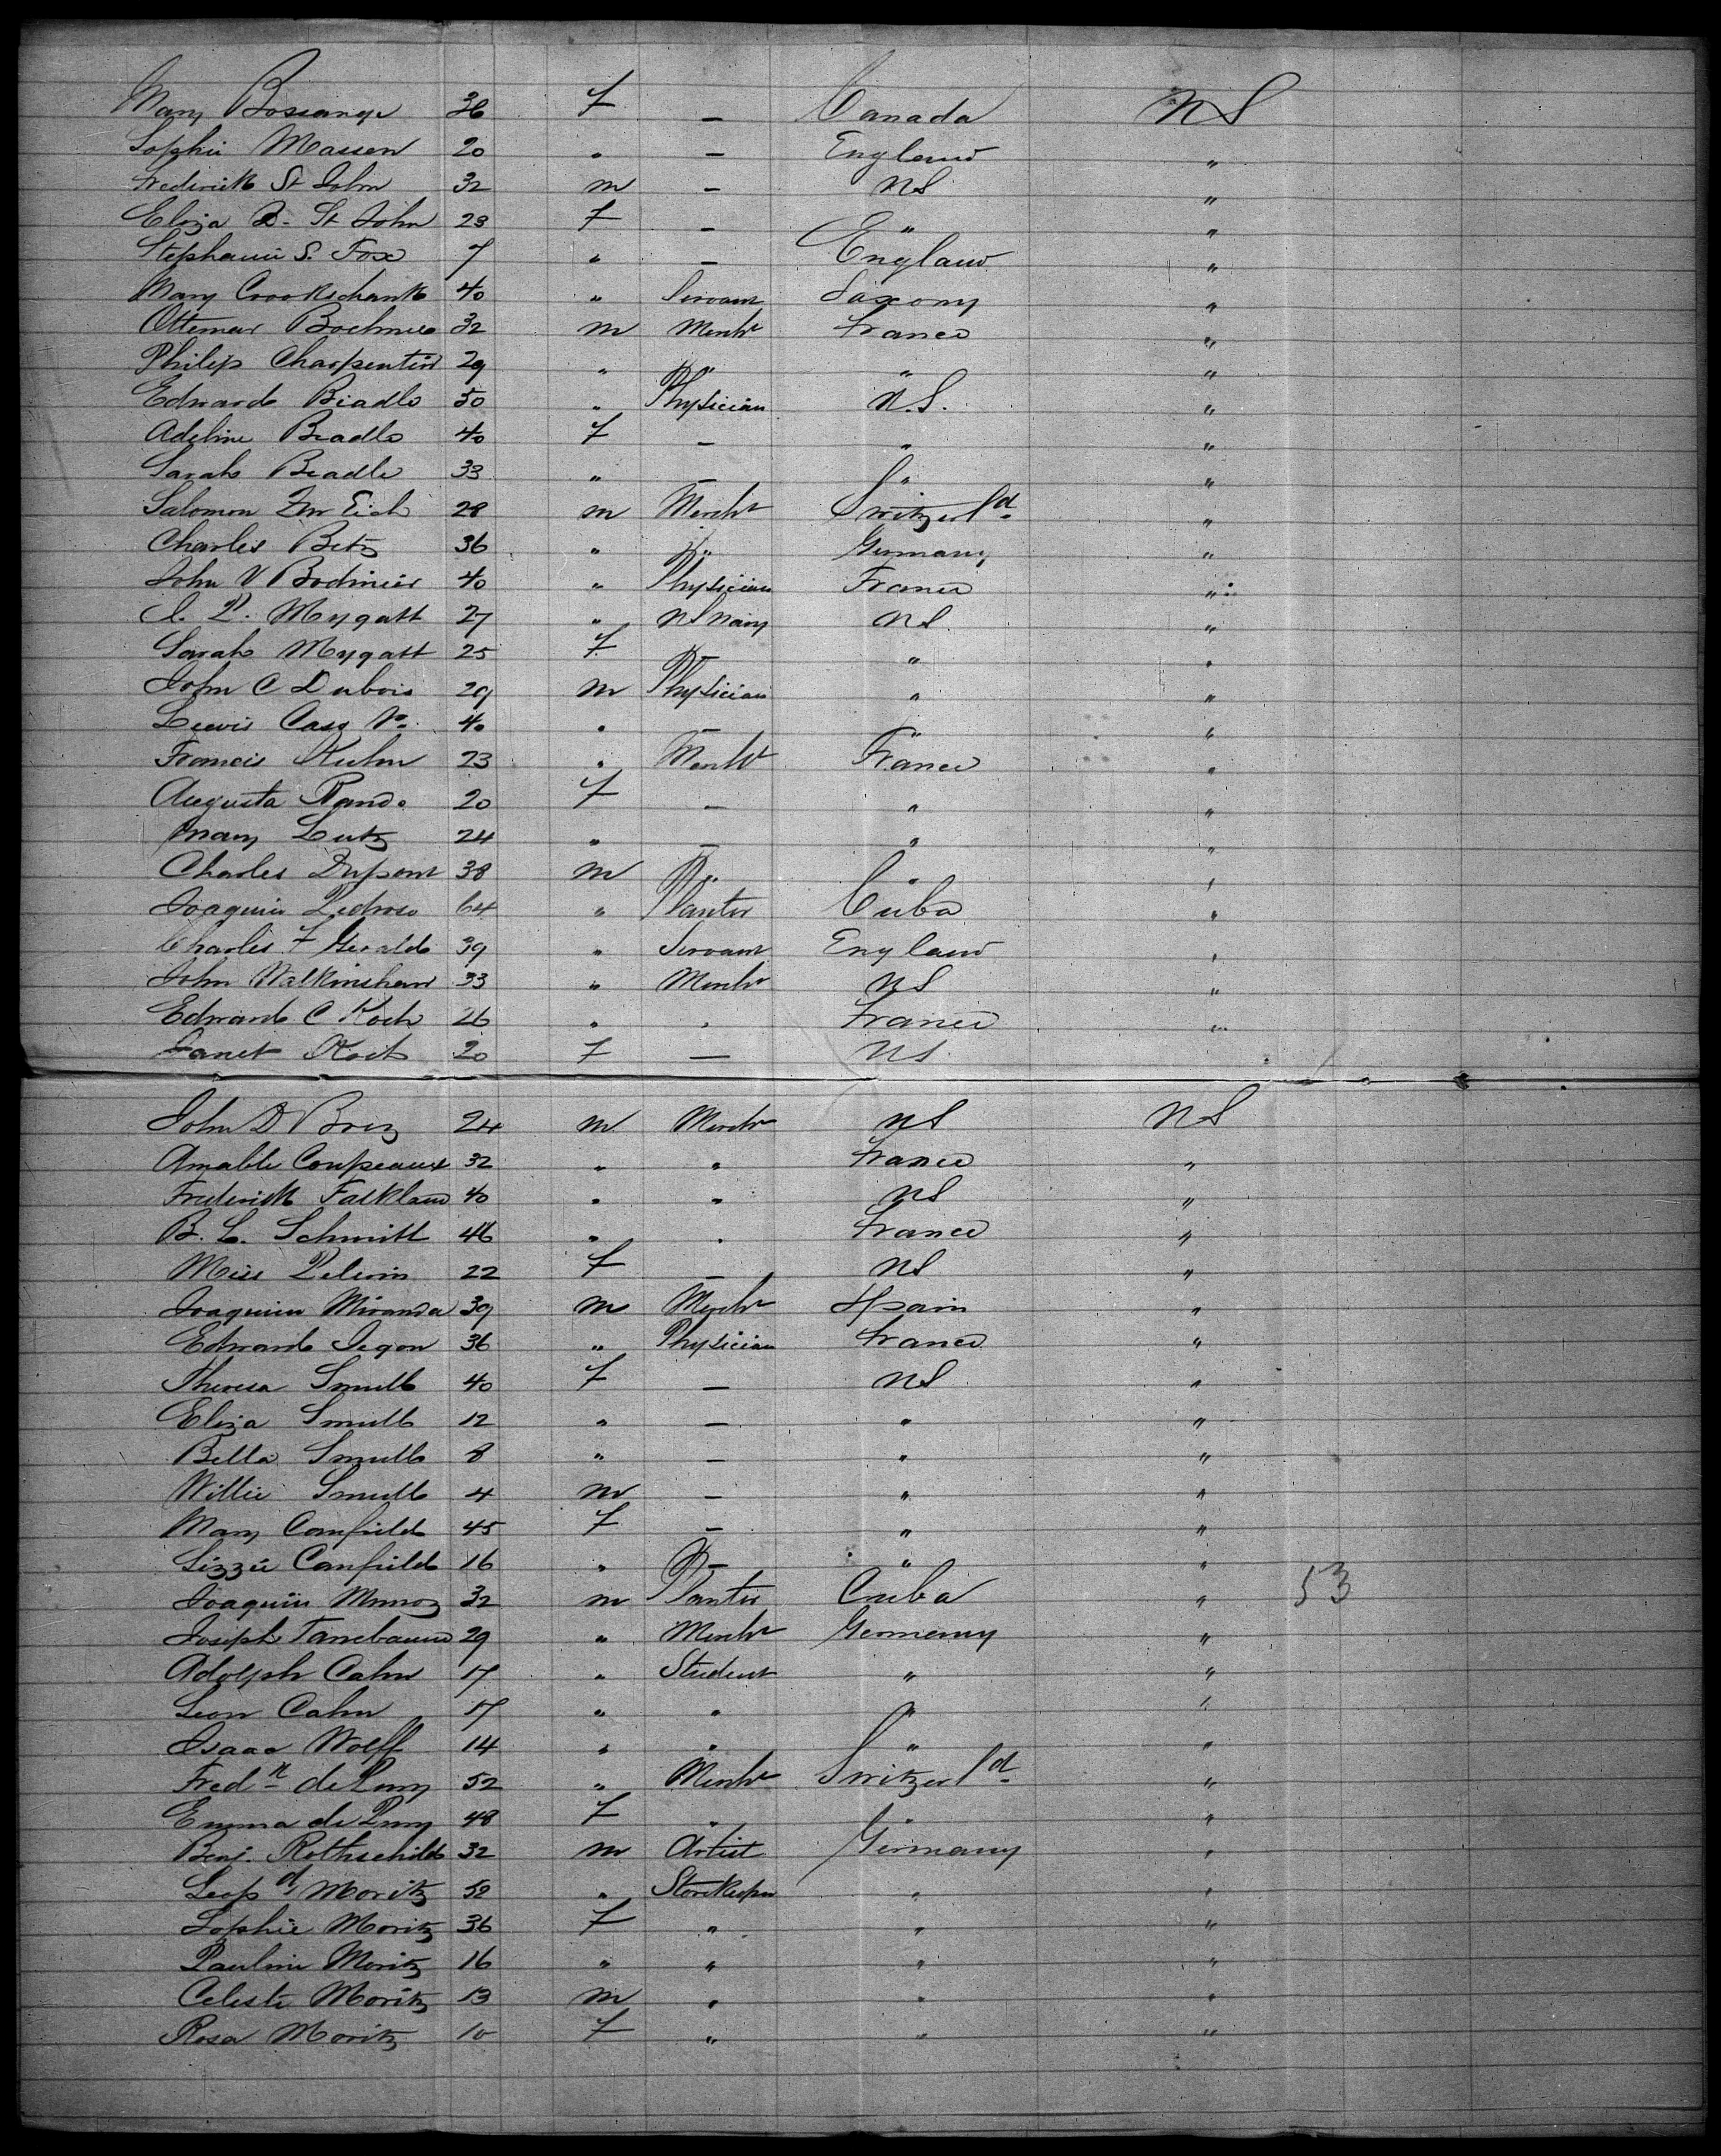 Mary Bossange 36 F — Canada US
Sophie Massen 20 " — England "
Frederick St John 32 m — US "
Eliza D. St John 23 F — " "
Stephanie S. Fox 7 " — England "
Mary Crookschank 40 " Servant Saxony "
Ottemar Boehmer 32 m Mercht France "
Philip Charpentier 29 " " " "
Edward Beadle 50 " Physician U.S. "
Adeline Beadle 40 F — " "
Sarah Beadle 33 " — " "
Salomon Zur Eich 28 m Mercht Switzerld "
Charles Betz 36 " " Germany "
John V Bodinier 40 " Physician France "
Mygatt 27 " US Navy US "
Sarah Mygatt 25 F — " "
John C Dubois 29 m Physician " "
Lewis Cass Jr. 40 " — " "
Francis Kuhn 23 " Mercht France "
Augusta Rand 20 F — " "
Mary Lutz 24 " — " "
Charles Dupont 38 m " " "
Joaquin Pedroso 64 " Planter Cuba "
Charles F Gerald 39 " Servant England "
John Walkinshaw 33 " Mercht US "
Edward C Koch 26 " " France "
Janet Koch 20 F — US "
John D Brez 24 m Mercht US US
Amable Coupeaux 32 " " France "
Frederick Falkland 40 " " US "
B. L. Schmitt 46 " " France "
Miss 22 F — US "
Joaquin Miranda 39 m Mercht Spain "
Edward Segon 36 " Physician France "
Theresa Smull 40 F — US "
Eliza Smull 12 " — " "
Bella Smull 8 " — " "
Willie Smull 4 m — " "
Mary Canfield 45 F — " "
Lizzie Canfield 16 " — " "
Joaquin Munoz 32 m Planter Cuba " 53
Joseph Tannebaum 29 " Mercht Germany "
Adolph Cahn 17 " Student " "
Leon Cahn 17 " " " "
Isaac Wolff 14 " " " "
Fredk de Pury 52 " Mercht Switzerld "
Emma de Pury 48 F " " "
Benj. Rothschild 32 m Artist Germany "
Leopd Moritz 52 " Storekeeper " "
Sophie Moritz 36 F " " "
Pauline Moritz 16 " " " "
Celeste Moritz 13 m " " "
Rosa Moritz 10 F " " "